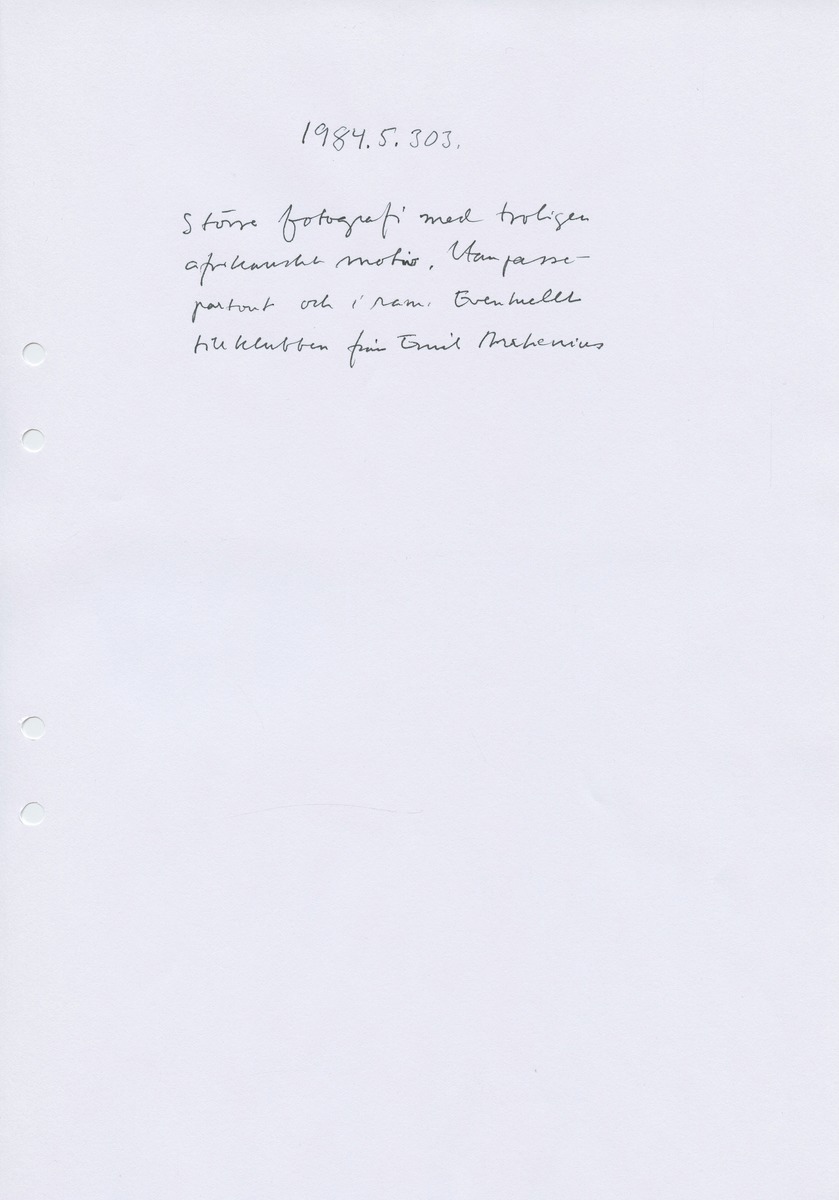 1984.5.303.
Större fotografi med troligen
afrikanskt motiv. Utan passe-
partout och i ram. Eventuellt
till klubben från Emil Arrhenius